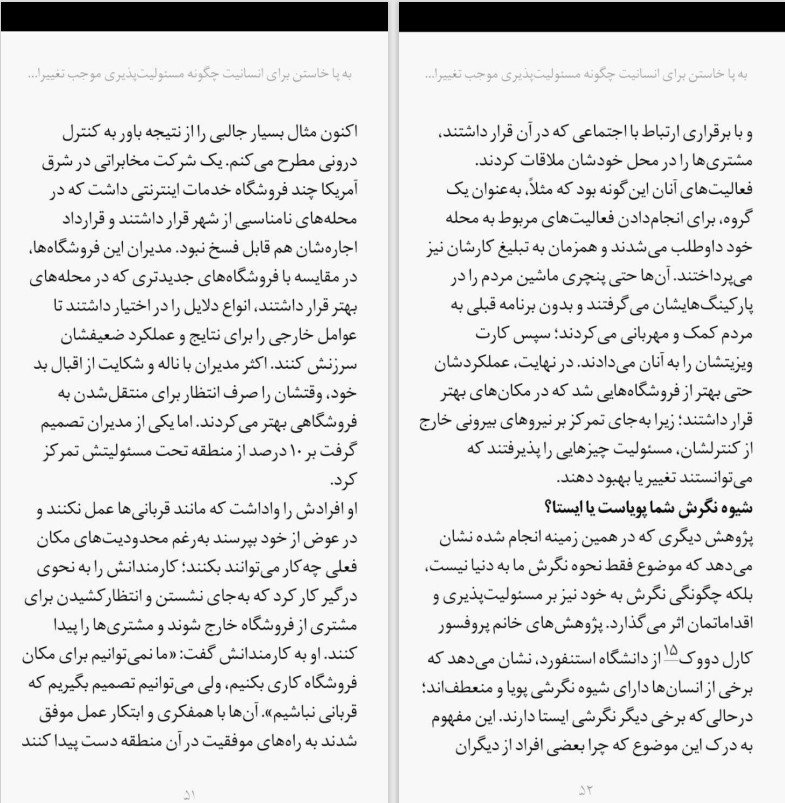 به پا خاستن برای انسانیت چگونه مسئولیت‌پذیری موجب تغییرا...
اکنون مثال بسیار جالبی را از نتیجه باور به کنترل
درونی مطرح می‌کنم. یک شرکت مخابراتی در شرق
آمریکا چند فروشگاه خدمات اینترنتی داشت که در
محله‌های نامناسبی از شهر قرار داشتند و قرارداد
اجاره‌شان هم قابل فسخ نبود. مدیران این فروشگاه‌ها،
در مقایسه با فروشگاه‌های جدیدتری که در محله‌های
بهتر قرار داشتند، انواع دلایل را در اختیار داشتند تا
عوامل خارجی را برای نتایج و عملکرد ضعیفشان
سرزنش کنند. اکثر مدیران با ناله و شکایت از اقبال بد
خود، وقتشان را صرف انتظار برای منتقل‌شدن به
فروشگاهی بهتر می‌کردند. اما یکی از مدیران تصمیم
گرفت بر ۱۰ درصد از منطقه تحت مسئولیتش تمرکز
کرد.
او افرادش را واداشت که مانند قربانی‌ها عمل نکنند و
در عوض از خود بپرسند به‌رغم محدودیت‌های مکان
فعلی چه‌کار می‌توانند بکنند؛ کارمندانش را به نحوی
درگیر کار کرد که به‌جای نشستن و انتظارکشیدن برای
مشتری از فروشگاه خارج شوند و مشتری‌ها را پیدا
کنند. او به کارمندانش گفت: «ما نمی‌توانیم برای مکان
فروشگاه کاری بکنیم، ولی می‌توانیم تصمیم بگیریم که
قربانی نباشیم». آن‌ها با همفکری و ابتکار عمل موفق
شدند به راه‌های موفقیت در آن منطقه دست پیدا کنند
۵۱
به پا خاستن برای انسانیت چگونه مسئولیت‌پذیری موجب تغییرا...
و با برقراری ارتباط با اجتماعی که در آن قرار داشتند،
مشتری‌ها را در محل خودشان ملاقات کردند.
فعالیت‌های آنان این‌گونه بود که مثلاً، به‌عنوان یک
گروه، برای انجام‌دادن فعالیت‌های مربوط به محله
خود داوطلب می‌شدند و همزمان به تبلیغ کارشان نیز
می‌پرداختند. آن‌ها حتی پنچری ماشین مردم را در
پارکینگ‌هایشان می‌گرفتند و بدون برنامه قبلی به
مردم کمک و مهربانی می‌کردند؛ سپس کارت
ویزیتشان را به آنان می‌دادند. در نهایت، عملکردشان
حتی بهتر از فروشگاه‌هایی شد که در مکان‌های بهتر
قرار داشتند؛ زیرا به‌جای تمرکز بر نیروهای بیرونی خارج
از کنترلشان، مسئولیت چیزهایی را پذیرفتند که
می‌توانستند تغییر یا بهبود دهند.
شیوه نگرش شما پویاست یا ایستا؟
پژوهش دیگری که در همین زمینه انجام شده نشان
می‌دهد که موضوع فقط نحوه نگرش ما به دنیا نیست،
بلکه چگونگی نگرش به خود نیز بر مسئولیت‌پذیری و
اقداماتمان اثر می‌گذارد. پژوهش‌های خانم پروفسور
کارل دووک۱۵ از دانشگاه استنفورد، نشان می‌دهد که
برخی از انسان‌ها دارای شیوه نگرشی پویا و منعطف‌اند؛
درحالی‌که برخی دیگر نگرشی ایستا دارند. این مفهوم
به درک این موضوع که چرا بعضی افراد از دیگران
۵۲